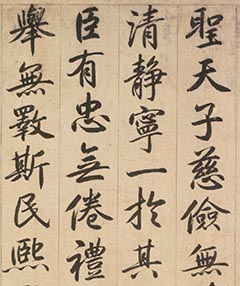 聖天子慈儉無
清静寧一於其
臣有忠無倦禮
舉無斁斯民熙